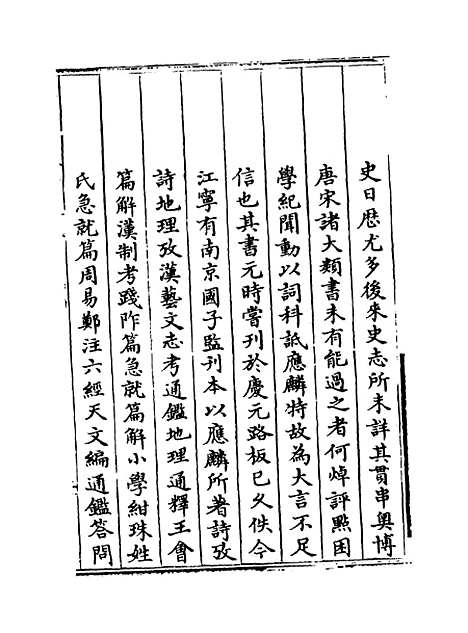 史日歴尤多後來史志所未詳其貫串奥博
唐宋諸大類書未有能過之者何焯評㸃困
學紀聞動以詞科詆應麟特故為大言不足
信也其書元時嘗刊於慶元路板已乆佚今
江寧有南京國子監刋本以應麟所著詩攷
詩地理攷漢藝文志考通鑑地理通釋王會
篇解漢制考踐阼篇急就篇解小學紺珠姓
氏急就篇周易鄭注六經天文編通鑑答問